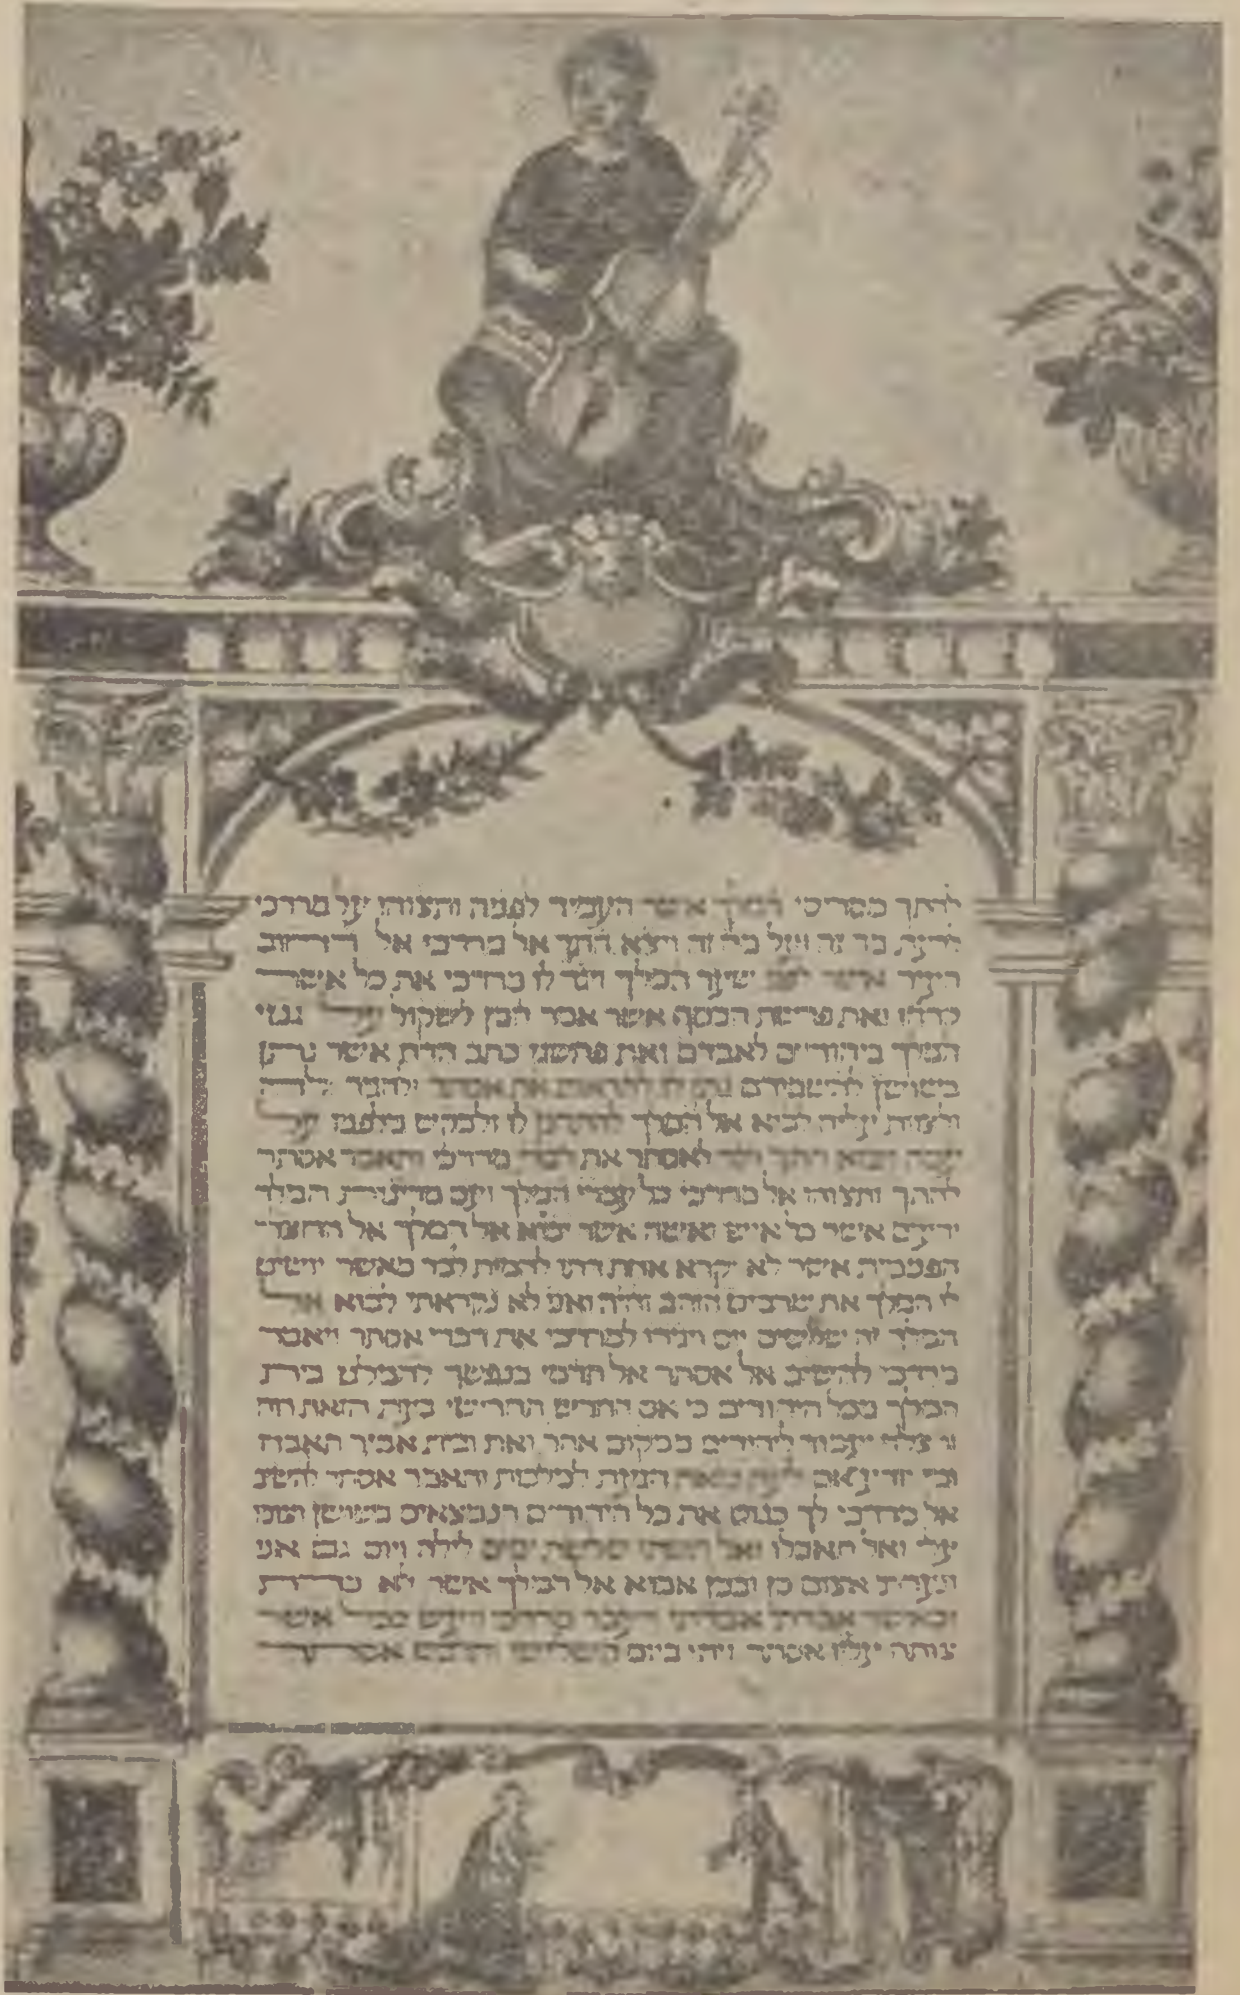 להתך מסריסי המלך אשר העמיד לפניה ותצוהו על מרדכי
לדעת מה זה ועל מה זה ויצא התך אל מרדכי אל רחוב
העיר אשר לפני שער המלך ויגד לו מרדכי את כל אשר
קרהו ואת פרשת הכסף אשר אמר המן לשקול על גנזי
המלך ביהודיים לאבדם ואת פתשגן כתב הדת אשר נתן
בשושן להשמידם נתן לו להראות את אסתר ולהגיד לה
ולצוות עליה לבוא אל המלך להתחנן לו ולבקש מלפניו על
עמה ויבוא התך ויגד לאסתר את דברי מרדכי ותאמר אסתר
להתך ותצוהו אל מרדכי כל עבדי המלך ועם מדינות המלך
ידעים אשר כל איש ואשה אשר יבוא אל המלך אל החצר
הפנימית אשר לא יקרא אחת דתו להמית לבד מאשר יושיט
לו המלך את שרביט הזהב וחיה ואני לא נקראתי לבוא אל
המלך זה שלושים יום ויגידו למרדכי את דברי אסתר ויאמר
מרדכי להשיב אל אסתר אל תדמי בנפשך להמלט בית
המלך מכל היהודים כי אם החרש תחרישי בעת הזאת רוח
והצלה יעמוד ליהודים ממקום אחר ואת ובית אביך תאבדו
ומי יודע אם לעת כזאת הגעת למלכות ותאמר אסתר להשיב
אל מרדכי לך כנוס את כל היהודים הנמצאים בשושן וצומו
עלי ואל תאכלו ואל תשתו שלשת ימים לילה ויום גם אני
ונערתי אצום כן ובכן אבוא אל המלך אשר לא כדת
וכאשר אבדתי אבדתי ויעבר מרדכי ויעש ככל אשר
צותה עליו אסתר ויהי ביום השלישי ותלבש אסתר